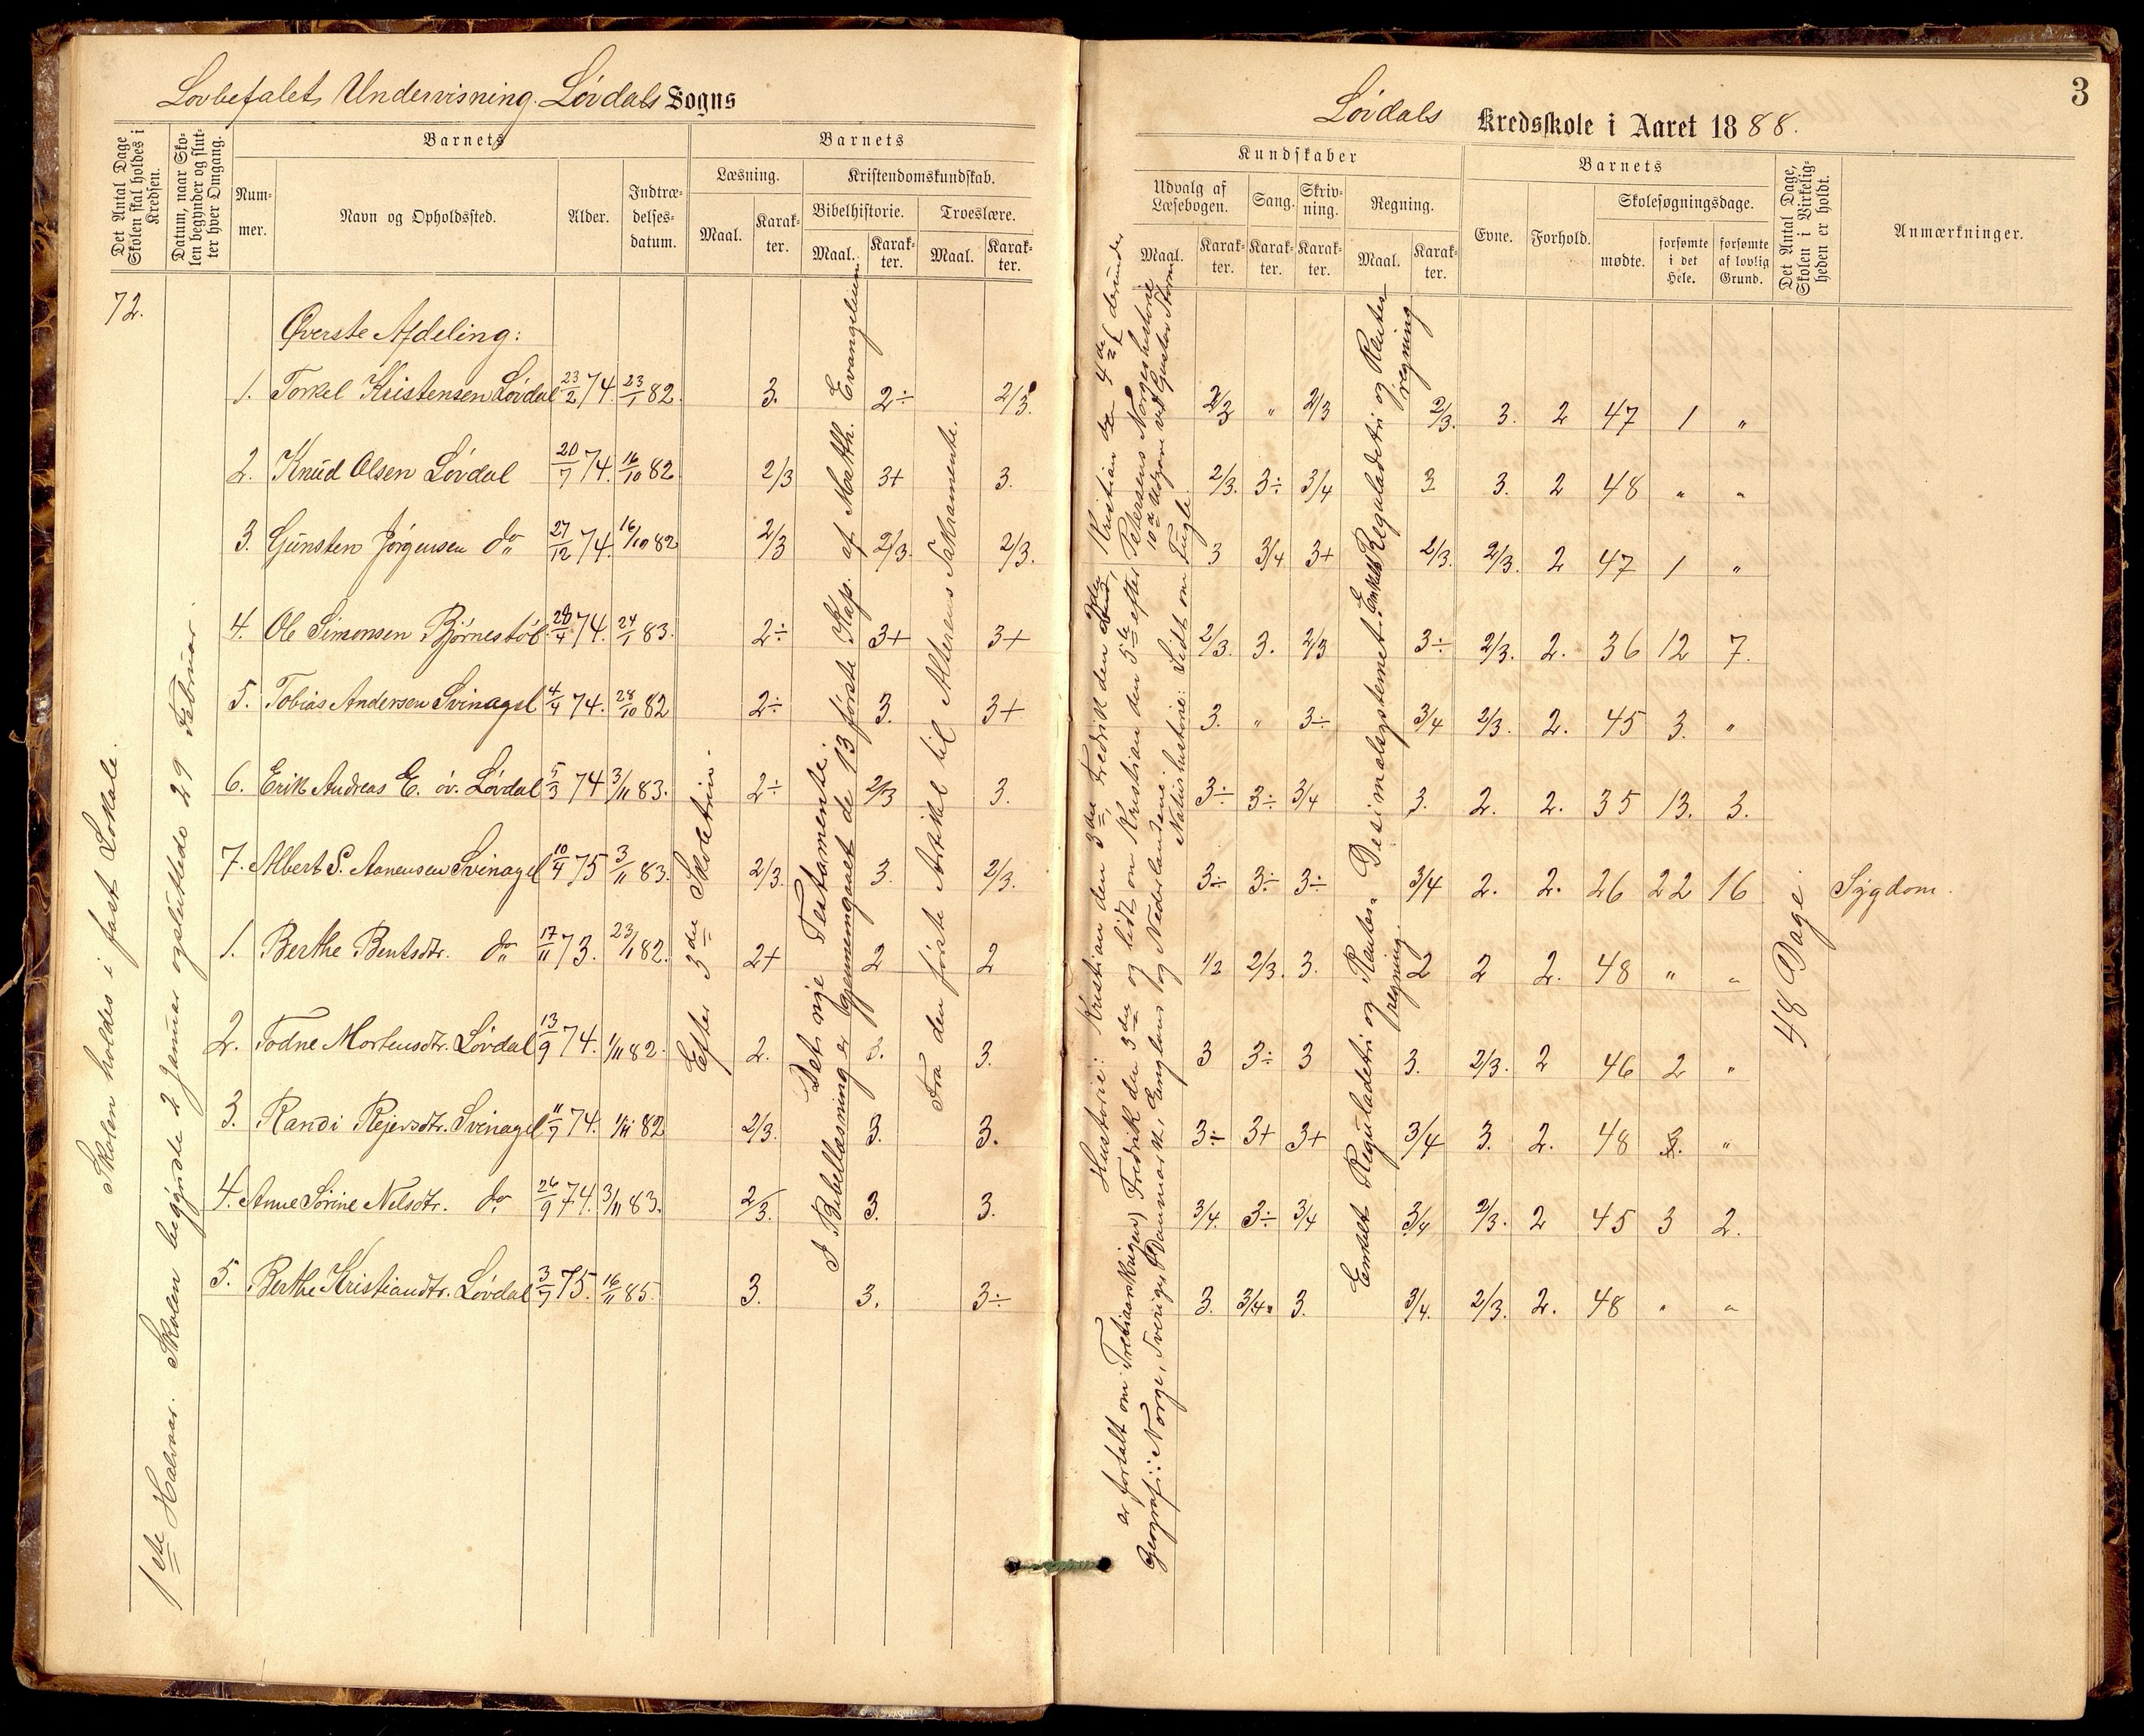 Lovbefalet Undervisning. Løvdals Sogns
Det Antal Dage Skolen skal holdes i Kredsen.
Datum, naar Skolen begynder og slutter hver Omgang.
Barnets
Nummer.
Navn og Opholdssted.
Alder.
Indtrædelsesdatum.
Barnets
Læsning.
Maal. Karakter.
Kristendomskundskab.
Bibelhistorie. Troeslære.
Maal. Karakter. Maal. Karakter.
72.
Øverste Afdeling:
1. Torkel Kristensen Løvdal 23/2 74. 23/1 82. 3. 2÷ 2/3.
2. Knud Olsen Løvdal 20/7 74. 16/10 82 2/3 3+ 3.
3. Gunsten Jørgensen do 27/12 74. 16/10 82 2/3 2/3. 2/3.
4. Ole Simonsen Bjørnestøl 28/4 74. 24/1 83. 2÷ 3+ 3+
5. Tobias Andersen Svinagel 4/4 74. 28/10 82 2÷ 3. 3+
6. Erik Andreas E. øv. Løvdal 5/3 74 3/11 83. 2÷ 2/3 3.
7. Albert S. Aanensen Svinagel 10/4 75 3/11 83. 2/3. 3. 2/3.
1. Berthe Bentsdtr. do 17/11 73. 23/1 82. 2+ 2 2
2. Todne Mortensdtr. Løvdal 13/9 74. 1/11 82. 2. 3. 3.
3. Randi Rejersdtr. Svinagel 11/7 74. 1/11 82 2/3. 3. 3.
4. Anne Sørine Nelsdtr. do 26/9 74. 3/11 83. 2/3. 3. 3.
5. Berthe Kristiandtr. Løvdal 3/7 75. 16/11 85. 3. 3. 3÷
Skolen holdes i fast Lokale.
1ste Halvaar. Skolen begyndte 2 Januar og sluttede 29 Februar.
Efter 3die Skoletrin.
Det nye Testamente.
I Bibellæsning er gjennemgaaet de 13 første Kap. af Matth. Evangelium
Fra den første Artikel til Alterens Sakramente.
Løvdals Kredsskole i Aaret 1888.
3
Kundskaber
Udvalg af Læsebogen.
Maal. Karakter.
Sang. Karakter.
Skrivning. Karakter.
Regning.
Maal. Karakter.
Barnets
Evne. Forhold.
Skolesøgningsdage.
mødte. forsømte i det Hele. forsømte af lovlig Grund.
Det Antal Dage, Skolen i Virkeligheden er holdt.
Anmærkninger.
2/3 " 2/3 2/3. 3. 2 47 1 "
2/3. 3÷ 3/4 3 3. 2 48 " "
3 3/4 3+ 2/3. 2/3. 2 47 1 "
2/3. 3. 2/3 3÷ 2/3. 2. 36 12 7.
3. " 3÷ 3/4 2/3. 2. 45 3. "
3÷ 3÷ 3/4 3. 2. 2. 35 13. 3.
3÷ 3÷ 3÷ 3/4 2. 2. 26 22 16 Sygdom.
1/2 2/3. 3. 2 2 2. 48 " "
3 3÷ 3 3. 2/3. 2 46 2 "
3÷ 3+ 3+ 3/4 3. 2. 48 3. "
3/4. 3÷ 3/4 3/4 2/3. 2 45 3 2.
3. 3/4. 3. 3/4. 2/3. 2. 48 " "
Historie: Kristian den 3die, Fredrik den 2den, Kristian den 4de (derunder
er fortalt om Trediaarskrigen) Fredrik den 3die og lidt om Kristian den 5te efter Petersens Norgeshistorie
Geografi: Norge, Sverige, Danmark, Englans og Nederlandene. 10de Udgave ved Gustav Storm
Naturhistorie: Lidt om Fugle.
Desimalsystemet. Enkelt Reguladetri og Rentesregning
Enkelt Reguladetri og Rentesregning.
48 Dage.